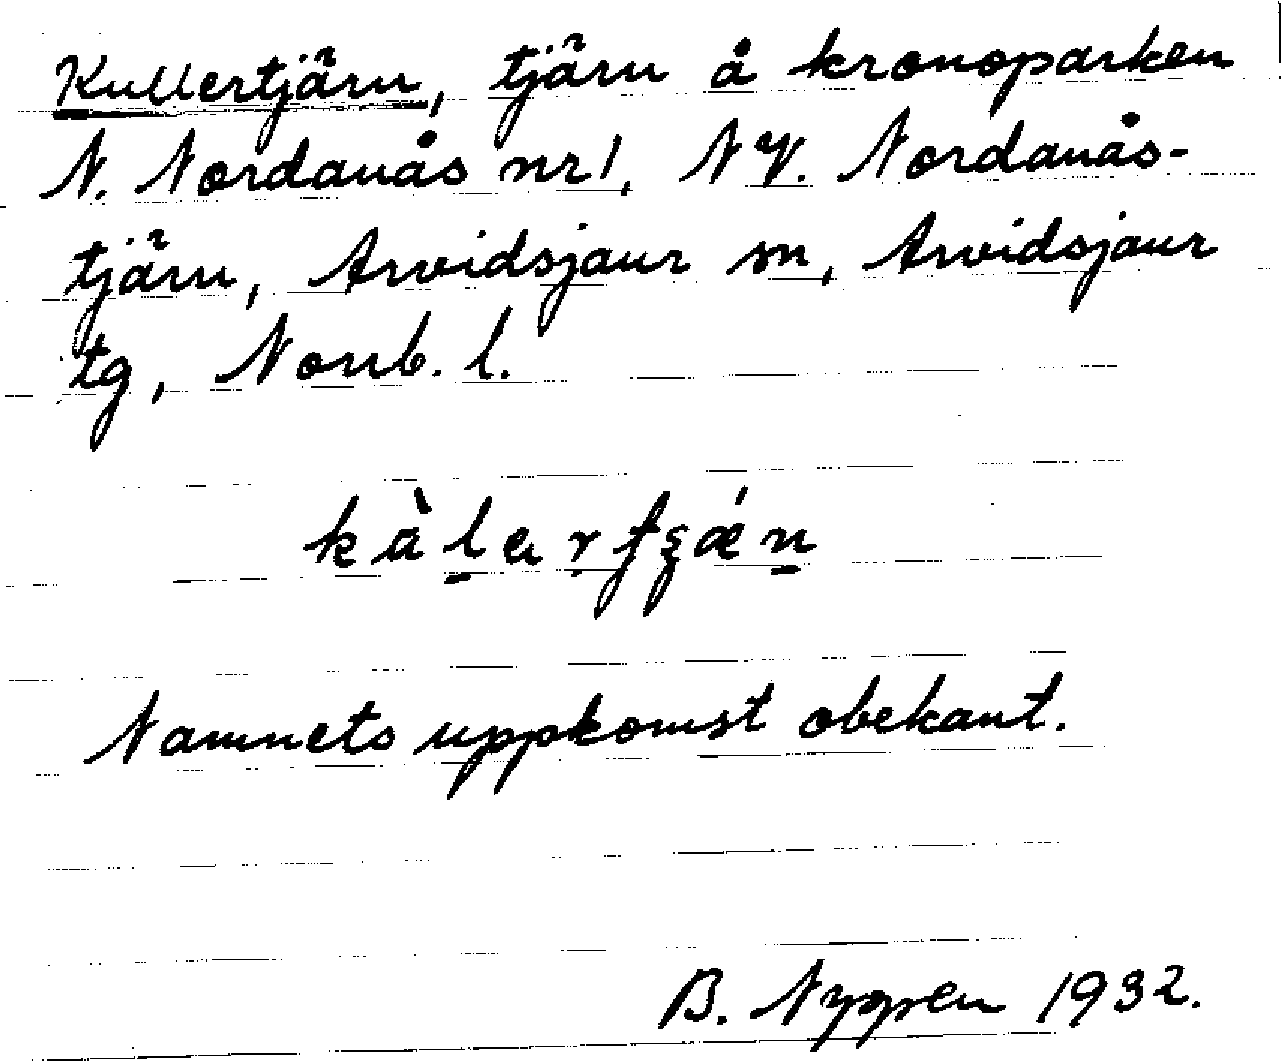 Kullertjärn, tjärn å kronoparken
N. Nordanås nr 1, NV. Nordanås-
tjärn, Arvidsjaur sn, Arvidsjaur
tg, Norrb. l.
Namnets uppkomst obekant.
B. Nygren 1932.